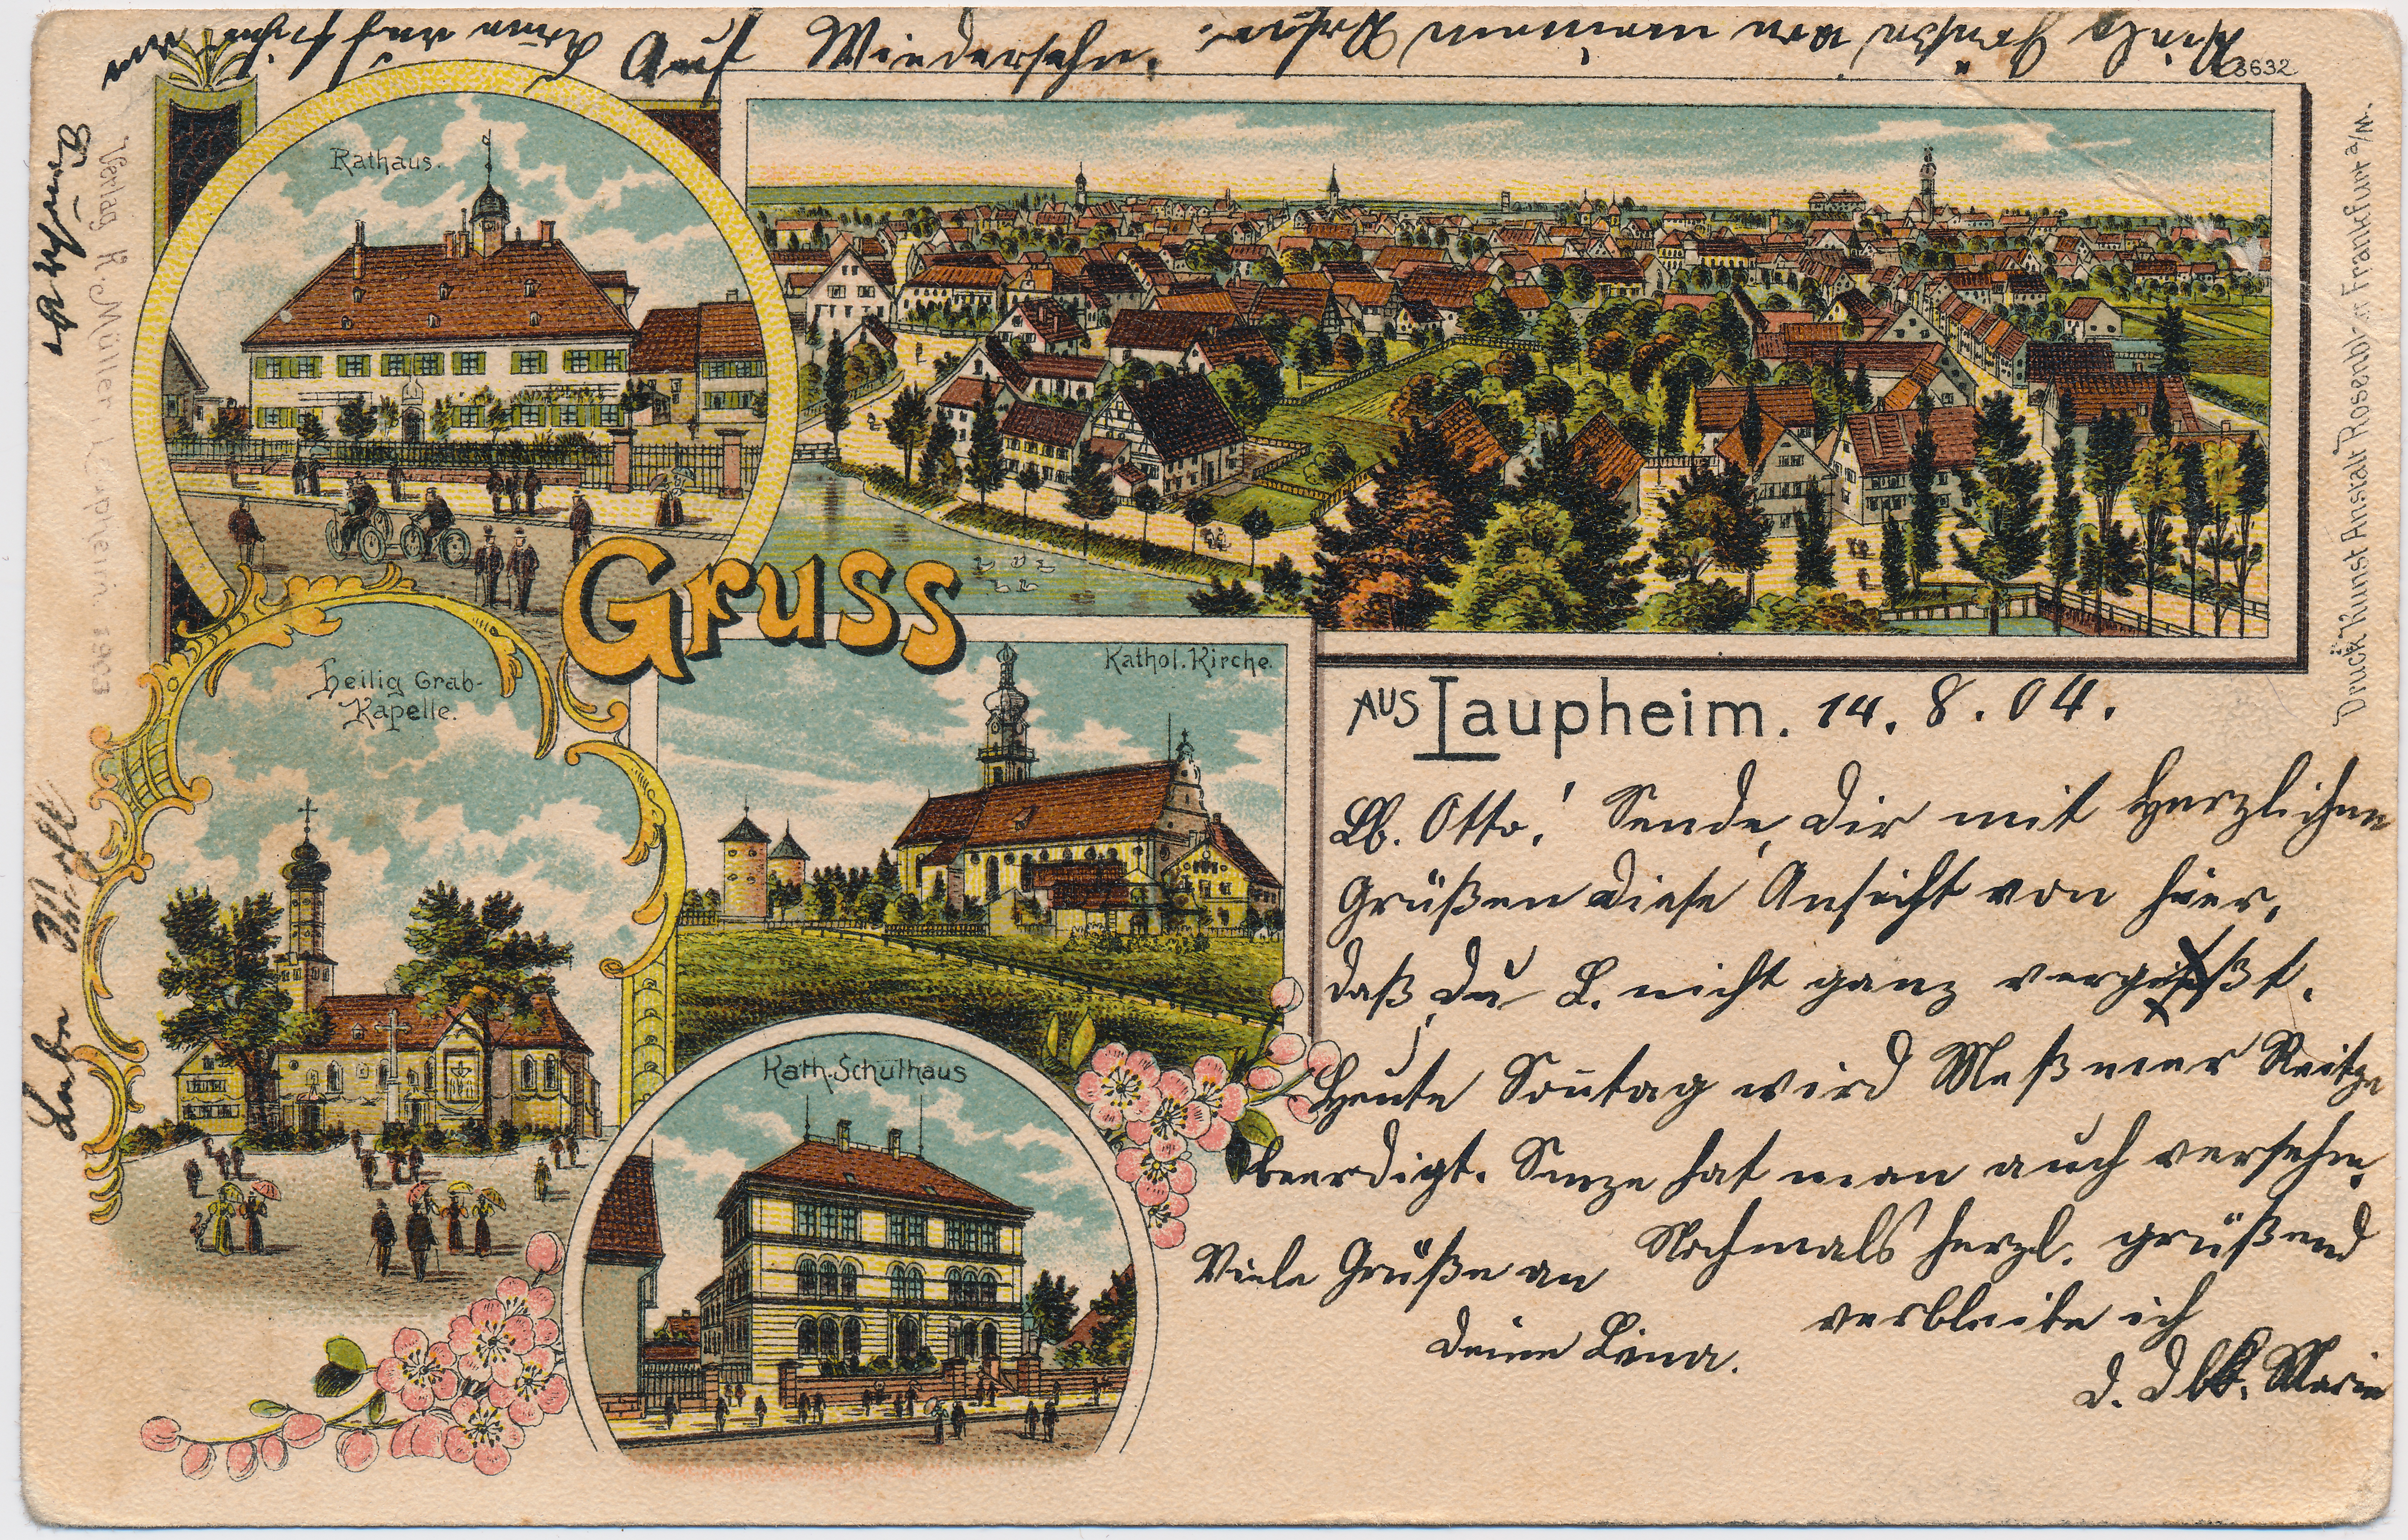 Auf Wiedersehn.
Viele Grüße von meinem
8632
Rathaus.
Gruss
AUS Laupheim. 14. 8. 04.
Heilig Grab-
Kapelle.
Kathol. Kirche.
Kath. Schulhaus
Lb. Otto! Sende Dir mit Herzlichen
Grüßen diese Ansicht von hier,
daß Du L. nicht ganz vergißt.
Heute Sontag wird Meßmer
beerdigt. hat man auch versehen.
Nochmals herzl. grüßend
verbleibe ich
Marie
Viele Grüße an
Deine Lina.
Verlag R. Müller Laupheim. 1903
Druck Kunst Anstalt Rosenblatt Frankfurt a/M.